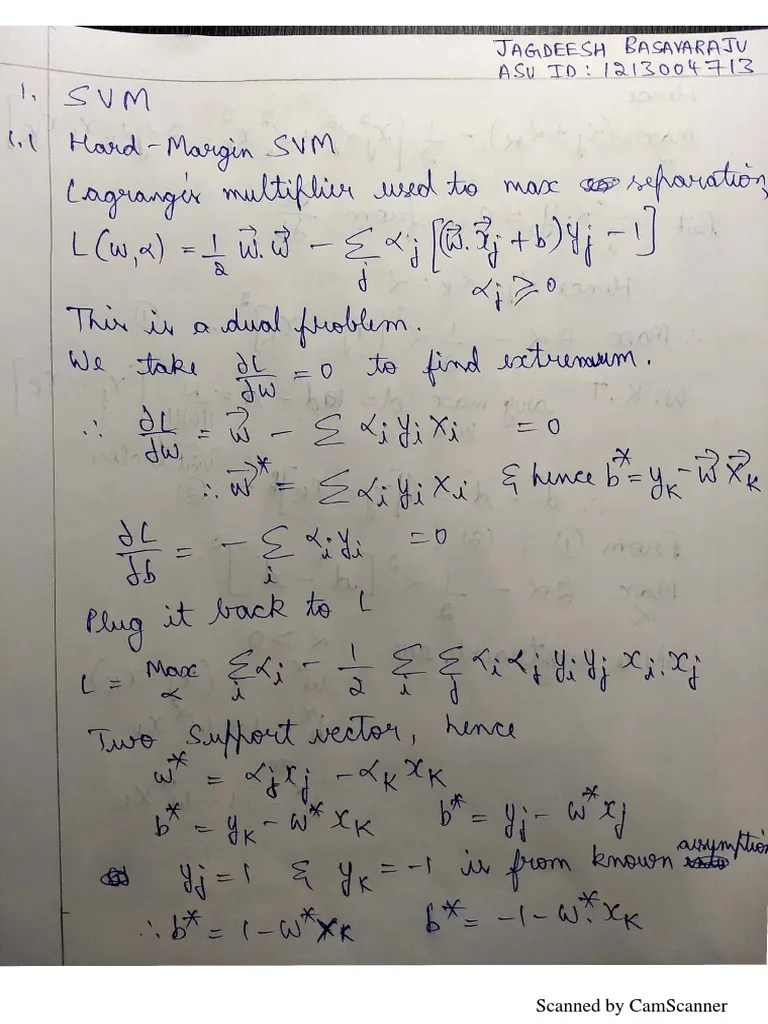 JAGDEESH BASAVARAJU
ASU ID: 1213004713
1. SVM
1.1 Hard-Margin SVM
Lagrange's multiplier used to max separation,
L(w,α) = 1/2 w⃗.w⃗ - Σ_j α_j [(w⃗.x⃗_j + b)y_j - 1]
α_j ⩾ 0
This is a dual problem.
We take ∂L/∂w = 0 to find extremum.
∴ ∂L/∂w = w⃗ - Σ α_i y_i x_i = 0
∴ w⃗* = Σ α_i y_i x_i & hence b* = y_K - w⃗ x⃗_K
∂L/∂b = - Σ_i α_i y_i = 0
Plug it back to L
L = Max_α Σ_i α_i - 1/2 Σ_i Σ_j α_i α_j y_i y_j x_i . x_j
Two support vector, hence
w* = α_j x_j - α_K x_K
b* = y_K - w* x_K b* = y_j - w* x_j
y_j = 1 & y_K = -1 is from known assymption
∴ b* = 1 - w* x_K b* = -1 - w*. x_K
Scanned by CamScanner